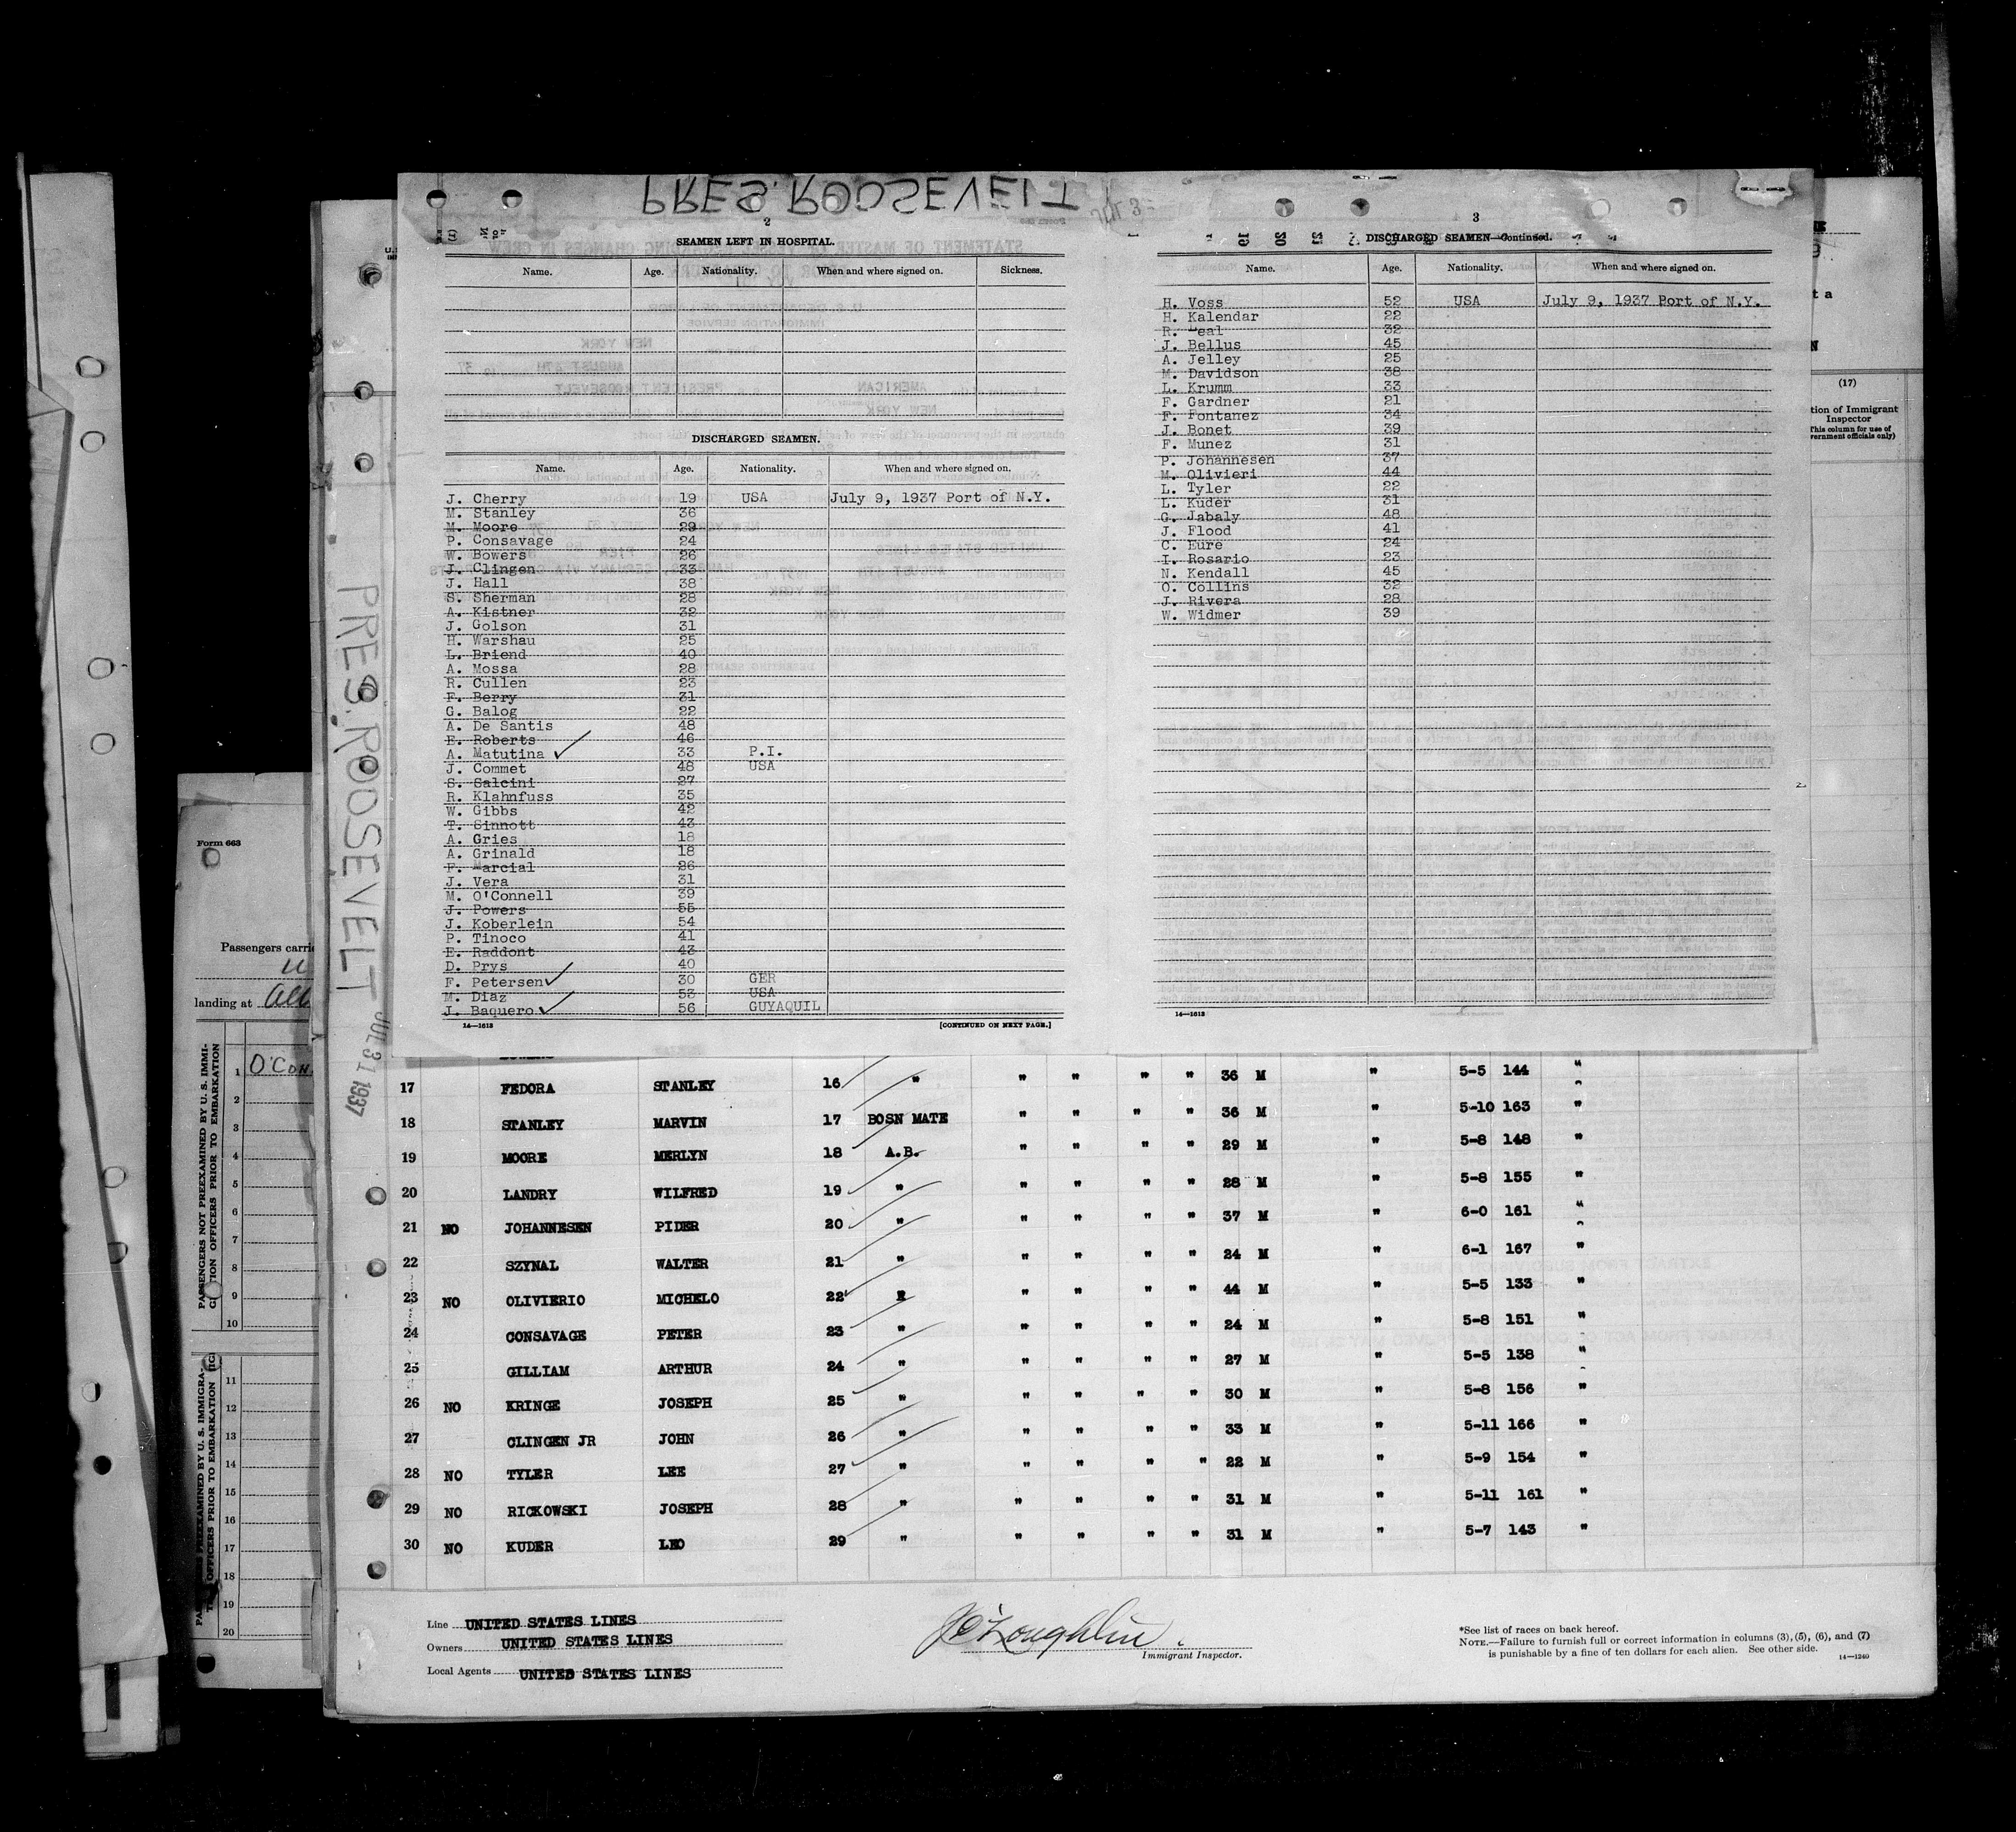 PRES. ROOSEVELT
2
SEAMEN LEFT IN HOSPITAL.
Name. Age. Nationality. When and where signed on. Sickness.
DISCHARGED SEAMEN.
Name. Age. Nationality. When and where signed on.
J. Cherry 19 USA July 9, 1937 Port of N.Y.
M. Stanley 36
M. Moore 29
P. Consavage 24
W. Bowers 26
J. Clingen 33
J. Hall 38
S. Sherman 28
A. Kistner 32
J. Golson 31
H. Warshau 25
L. Briend 40
A. Mossa 28
R. Cullen 23
F. Berry 31
G. Balog 22
A. De Santis 48
E. Roberts 46
A. Matutina 33 P.I.
J. Commet 48 USA
S. Salcini 27
R. Klahnfuss 35
W. Gibbs 42
T. Sinnott 43
A. Gries 18
A. Grinald 18
F. Marcial 26
J. Vera 31
M. O'Connell 39
J. Powers 55
J. Koberlein 54
P. Tinoco 41
E. Raddont 43
D. Prys 40
F. Petersen 30 GER
M. Diaz 53 USA
J. Baquero 56 GUYAQUIL
14—1613 [CONTINUED ON NEXT PAGE.]
3
DISCHARGED SEAMEN—Continued.
Name. Age. Nationality. When and where signed on.
H. Voss 52 USA July 9, 1937 Port of N.Y.
H. Kalendar 22
R. Leal 32
J. Bellus 45
A. Jelley 25
M. Davidson 38
L. Krumm 33
F. Gardner 21
F. Fontanez 34
J. Bonet 39
F. Munez 31
P. Johannesen 37
M. Olivieri 44
L. Tyler 22
L. Kuder 31
G. Jabaly 48
J. Flood 41
C. Eure 24
I. Rosario 23
N. Kendall 45
O. Collins 32
J. Rivera 28
W. Widmer 39
14—1613
(17)
tion of Immigrant
Inspector
This column for use of
ernment officials only)
PRES. ROOSEVELT JUL 31 1937
Form 663
Passengers carri
landing at
PASSENGERS NOT PREEXAMINED BY U. S. IMMI-
TION OFFICERS PRIOR TO EMBARKATION
1 O'Con
2
3
4
5
6
7
8
9
10
PREEXAMINED BY U. S. IMMIGRA-
OFFICERS PRIOR TO EMBARKATION
11
12
13
14
15
16
17
18
19
20
17 FEDORA STANLEY 16 " " " " " 36 M " 5-5 144 "
18 STANLEY MARVIN 17 BOSN MATE " " " " 36 M " 5-10 163 "
19 MOORE MERLYN 18 A.B. " " " " 29 M " 5-8 148 "
20 LANDRY WILFRED 19 " " " " " 28 M " 5-8 155 "
21 NO JOHANNESEN PIDER 20 " " " " " 37 M " 6-0 161 "
22 SZYNAL WALTER 21 " " " " " 24 M " 6-1 167 "
23 NO OLIVIERIO MICHELO 22 " " " " " 44 M " 5-5 133 "
24 CONSAVAGE PETER 23 " " " " " 24 M " 5-8 151 "
25 GILLIAM ARTHUR 24 " " " " " 27 M " 5-5 138 "
26 NO KRINGE JOSEPH 25 " " " " " 30 M " 5-8 156 "
27 CLINGEN JR JOHN 26 " " " " " 33 M " 5-11 166 "
28 NO TYLER LEE 27 " " " " " 22 M " 5-9 154 "
29 NO RICKOWSKI JOSEPH 28 " " " " " 31 M " 5-11 161 "
30 NO KUDER LEO 29 " " " " " 31 M " 5-7 143 "
Line UNITED STATES LINES
Owners UNITED STATES LINES
Local Agents UNITED STATES LINES
Immigrant Inspector.
*See list of races on back hereof.
NOTE.—Failure to furnish full or correct information in columns (3), (5), (6), and (7)
is punishable by a fine of ten dollars for each alien. See other side.
14—1240